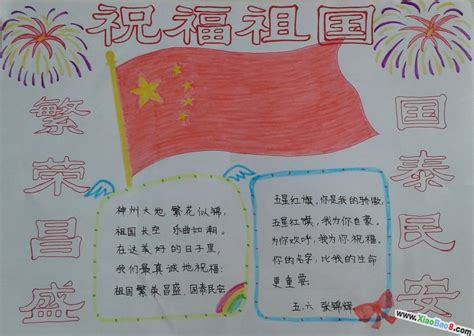 祝福祖国
繁荣昌盛
国泰民安
神州大地 繁花似锦,
祖国长空 乐曲如潮.
在这美好的日子里,
我们最真诚地祝福:
祖国繁荣昌盛,国泰民安
五星红旗,你是我的骄傲,
五星红旗,我为你自豪.
为你欢呼,我为你祝福.
你的名字,比我的生命
更重要.
五.六 张锦辉
www.XiaoBao8.com